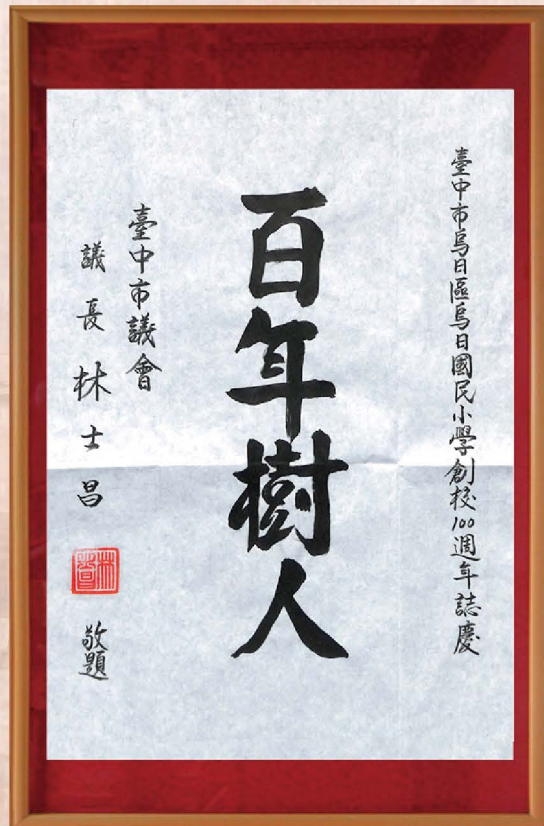 臺中市烏日區烏日國民小學創校100週年誌慶
百年樹人
臺中市議會
議長林士昌
敬題